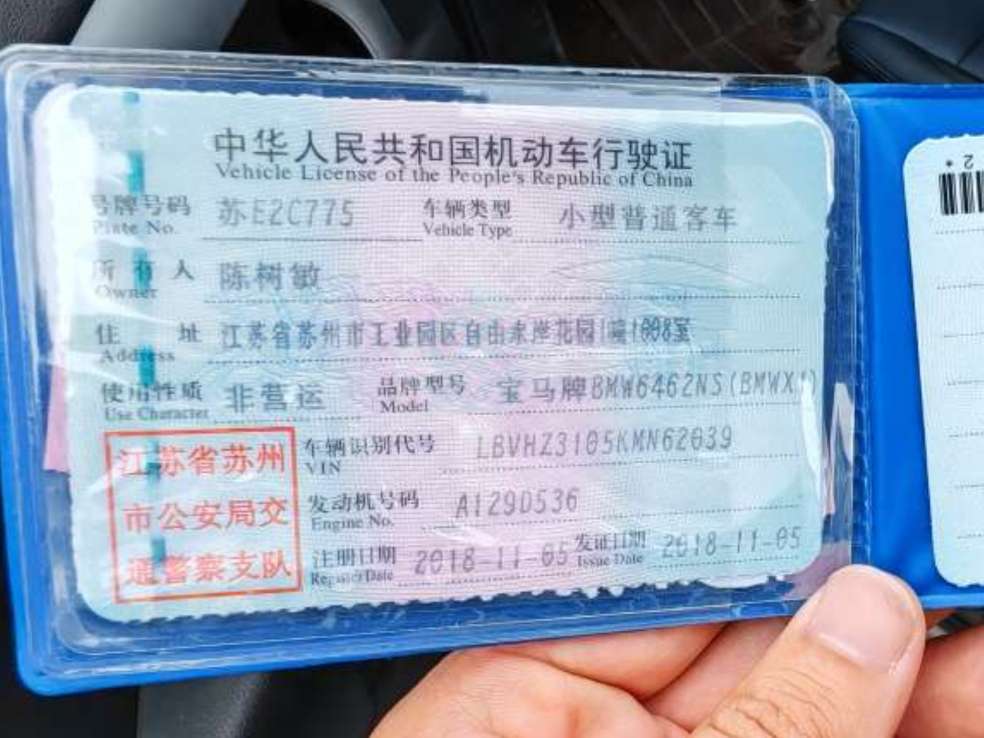 中华人民共和国机动车行驶证
Vehicle License of the People's Republic of China
号牌号码 苏E2C775 车辆类型 小型普通客车
Plate No. Vehicle Type
所有人 陈树敏
Owner
住址 江苏省苏州市工业园区自由水岸花园1幢1008室
Address
使用性质 非营运 品牌型号 宝马牌BMW6462NS(BMWX1)
Use Character Model
江苏省苏州
市公安局交
通警察支队
车辆识别代号 LBVHZ3105KMN62039
VIN
发动机号码 A129D536
Engine No.
注册日期 2018-11-05 发证日期 2018-11-05
Register Date Issue Date